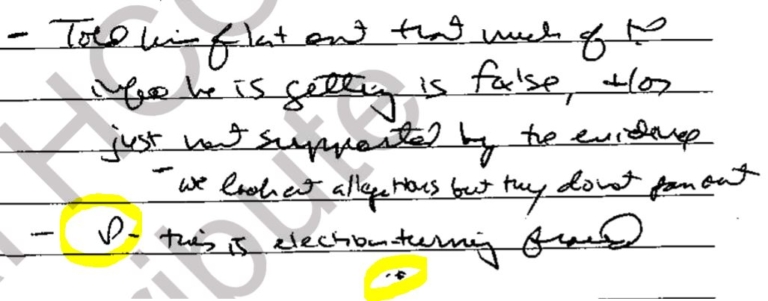 - Told him flat out that much of the
info he is getting is false, +/or
just not supported by the evidence
- we look at allegations but they don't pan out
- P - this is election-turning fraud